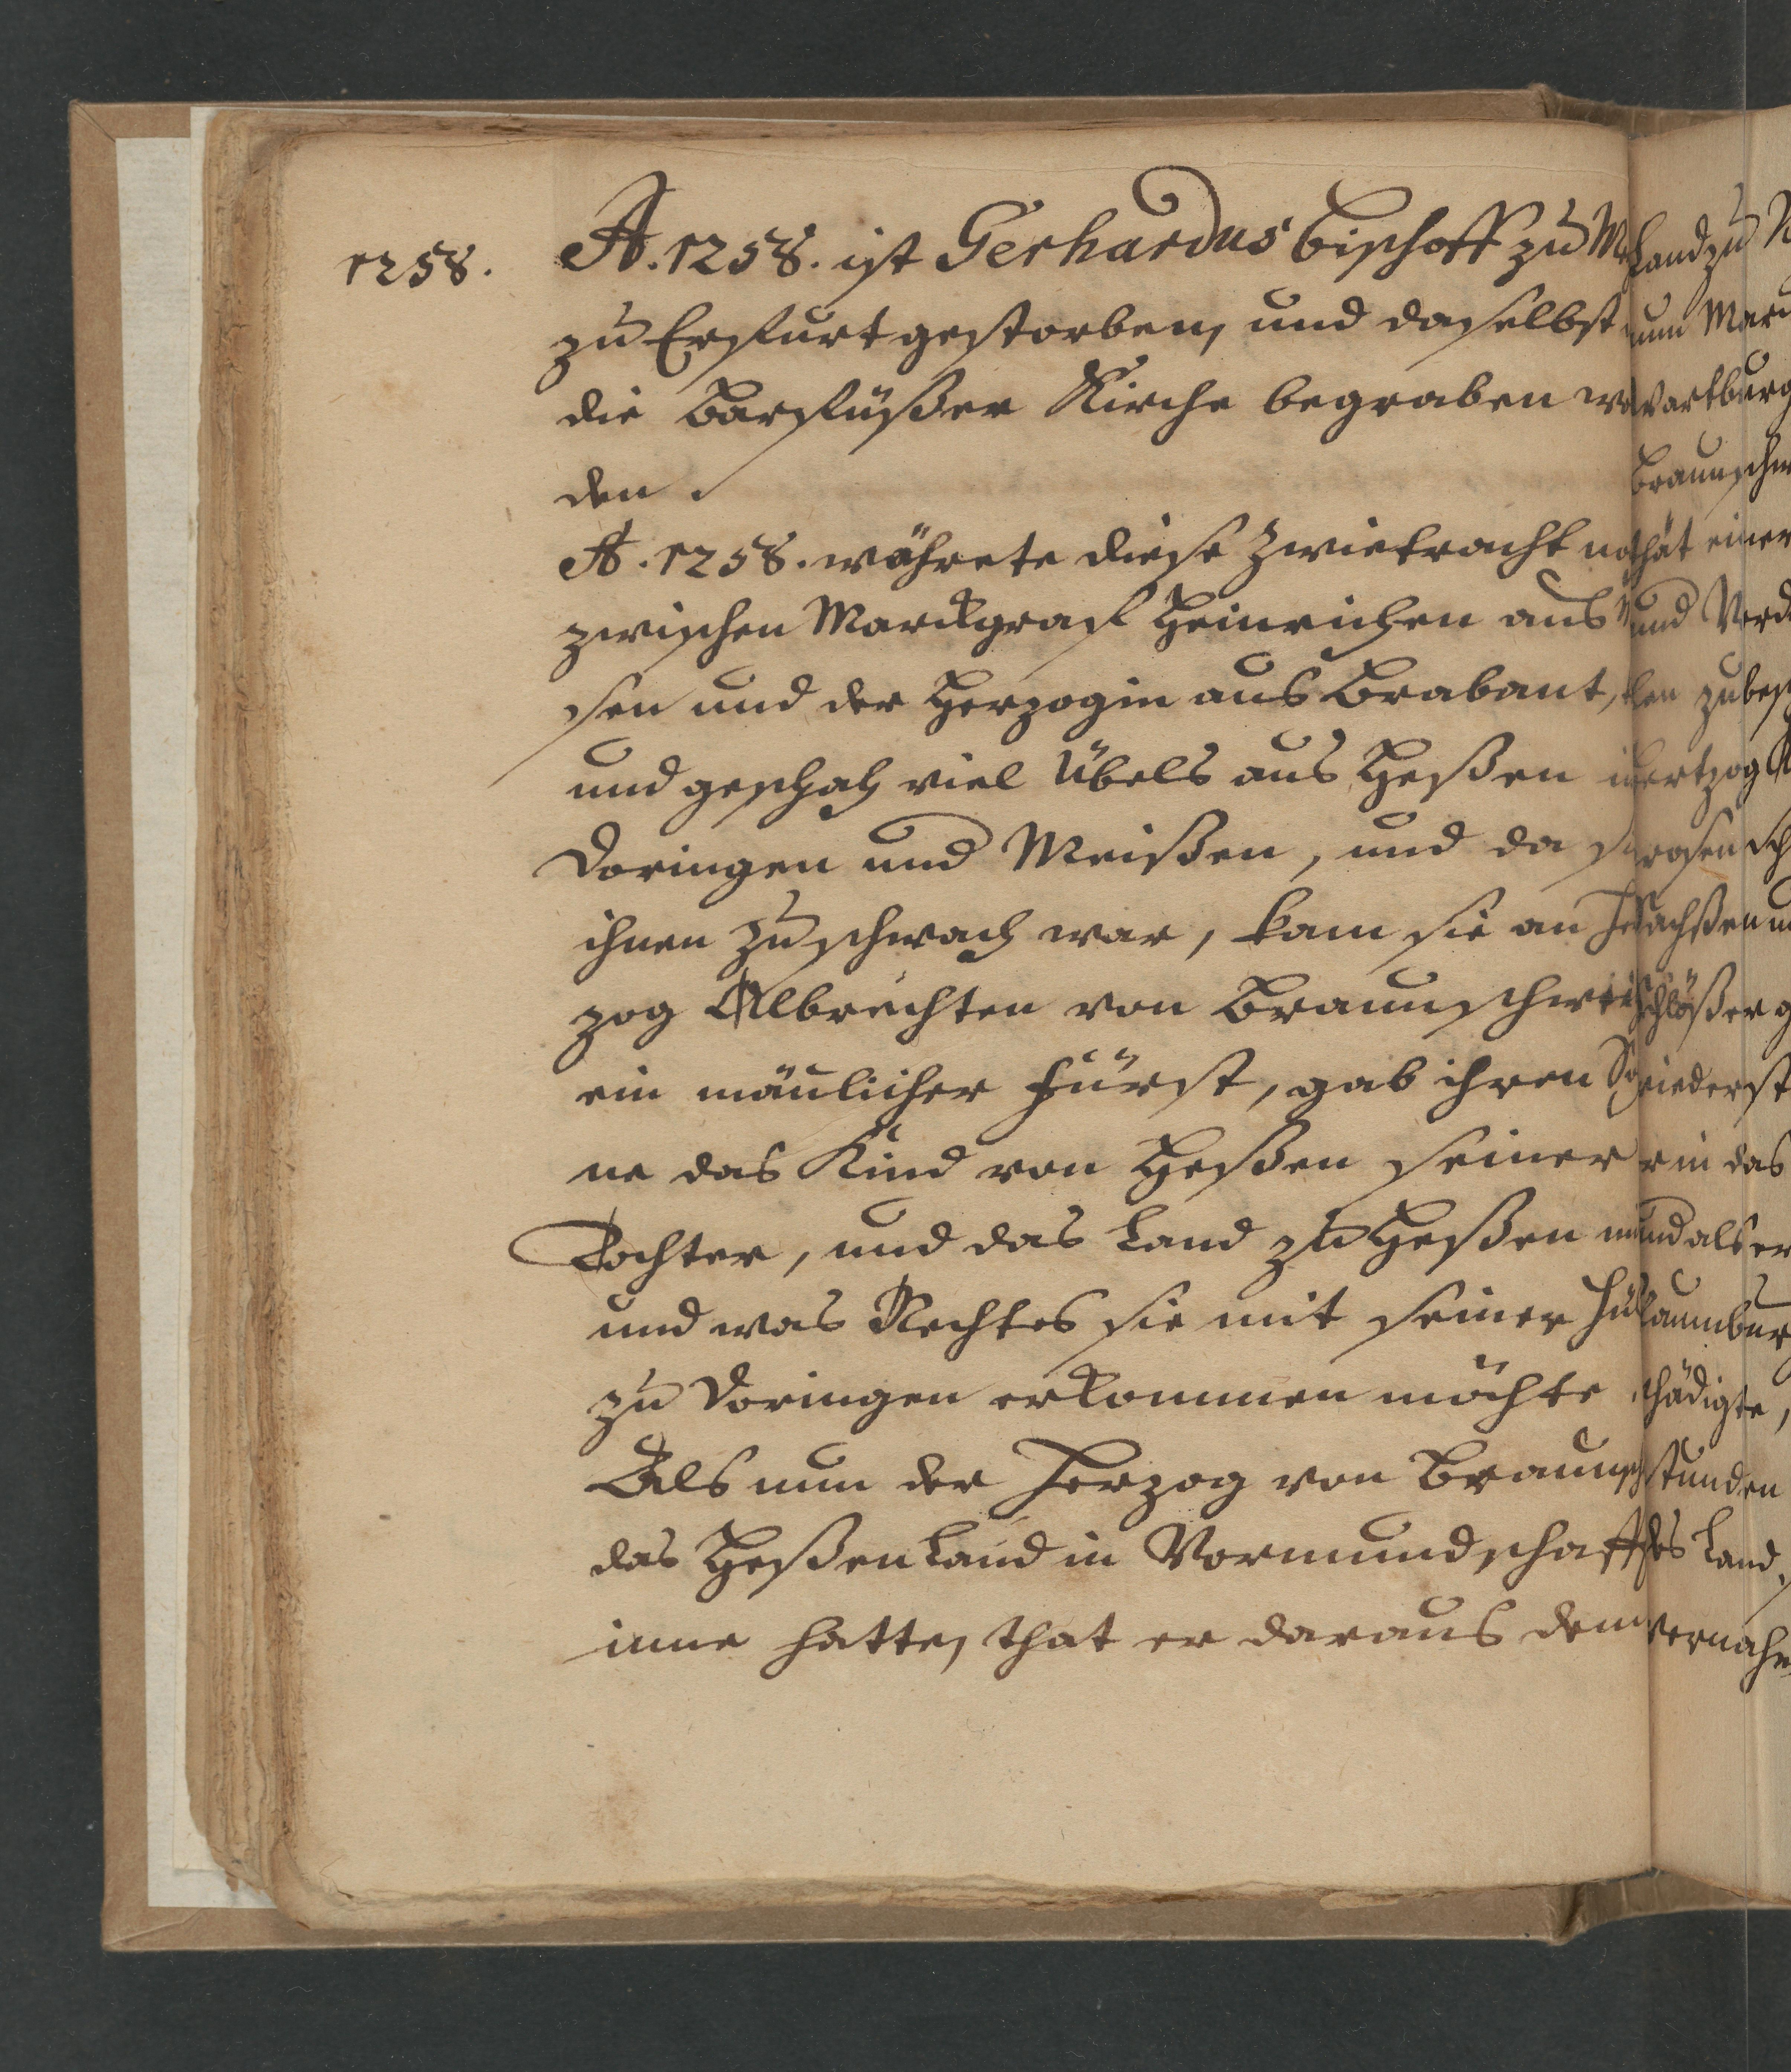 1258.
A. 1258. ist Gerhardus Bischoff zu
zu Erffurt gestorben, und daselbst
die Barfüßer Kirche begraben wo
den.
A. 1258. währete diese Zwietracht no
zwischen Marckgraf Heinrichen aus
sen und der Herzogin aus Brabant,
und geschah viel Übels aus Heßen i
Doringen und Meißen, und da s
ihnen zu schwach war, kam sie an
zog Albrechten von Braunschwei
ein mäulicher Fürst, gab ihren So
ne das Kind von Heßen seiner
Tochter, und das Land zu Heßen
und was Rechtes sie mit seiner Hül
zu Doringen erkommen möchte
Als nun der Herzog von Braunsch
das Heßen Land in Vormundschafft
inne hatte, that er daraus dem
Land zu
num Mar
wartburg
Braunschw
thät einer
und
len zu bes
hertzog
rosen sch
Sachßen
Schlößer g
niederst
in das
und als er
aumbur
schädigte,
stunden
des Land,
vernahm